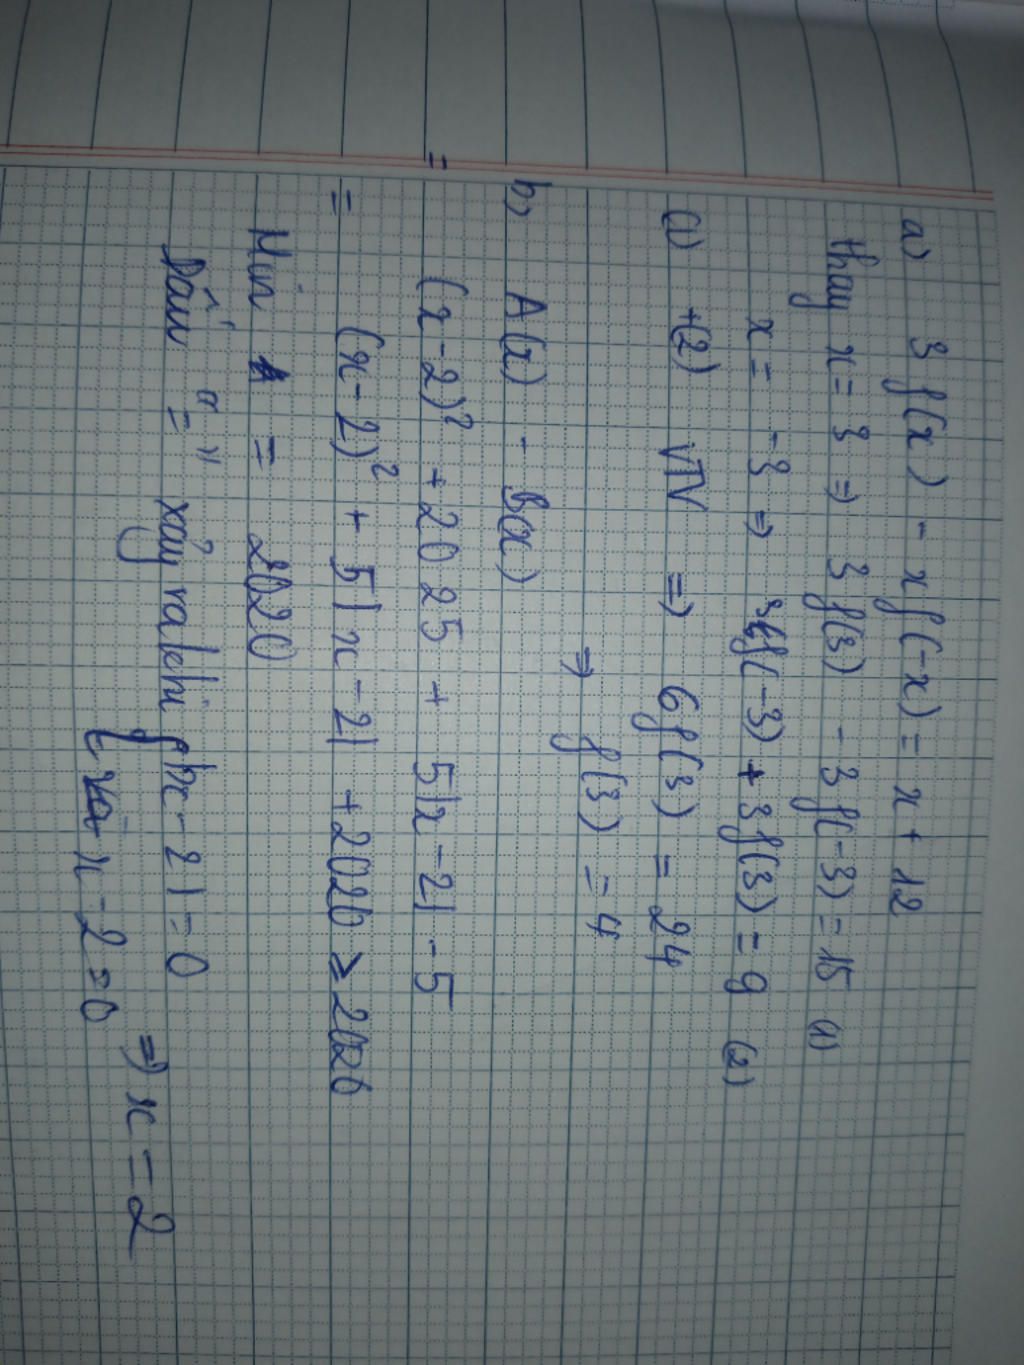 a) 3f(x) - xf(-x) = x + 12
thay x = 3 ⇒ 3f(3) - 3f(-3) = 15 (1)
x = -3 ⇒ 3f(-3) + 3f(3) = 9 (2)
(1) + (2) VTV ⇒ 6f(3) = 24
⇒ f(3) = 4
b) A(x) - B(x)
= (x-2)² + 2025 + 5|x-2| -5
= (x-2)² + 5|x-2| + 2020 ≥ 2020
Min = 2020
Dấu "=" xảy ra khi { |x-2| = 0
x-2=0 ⇒ x = 2